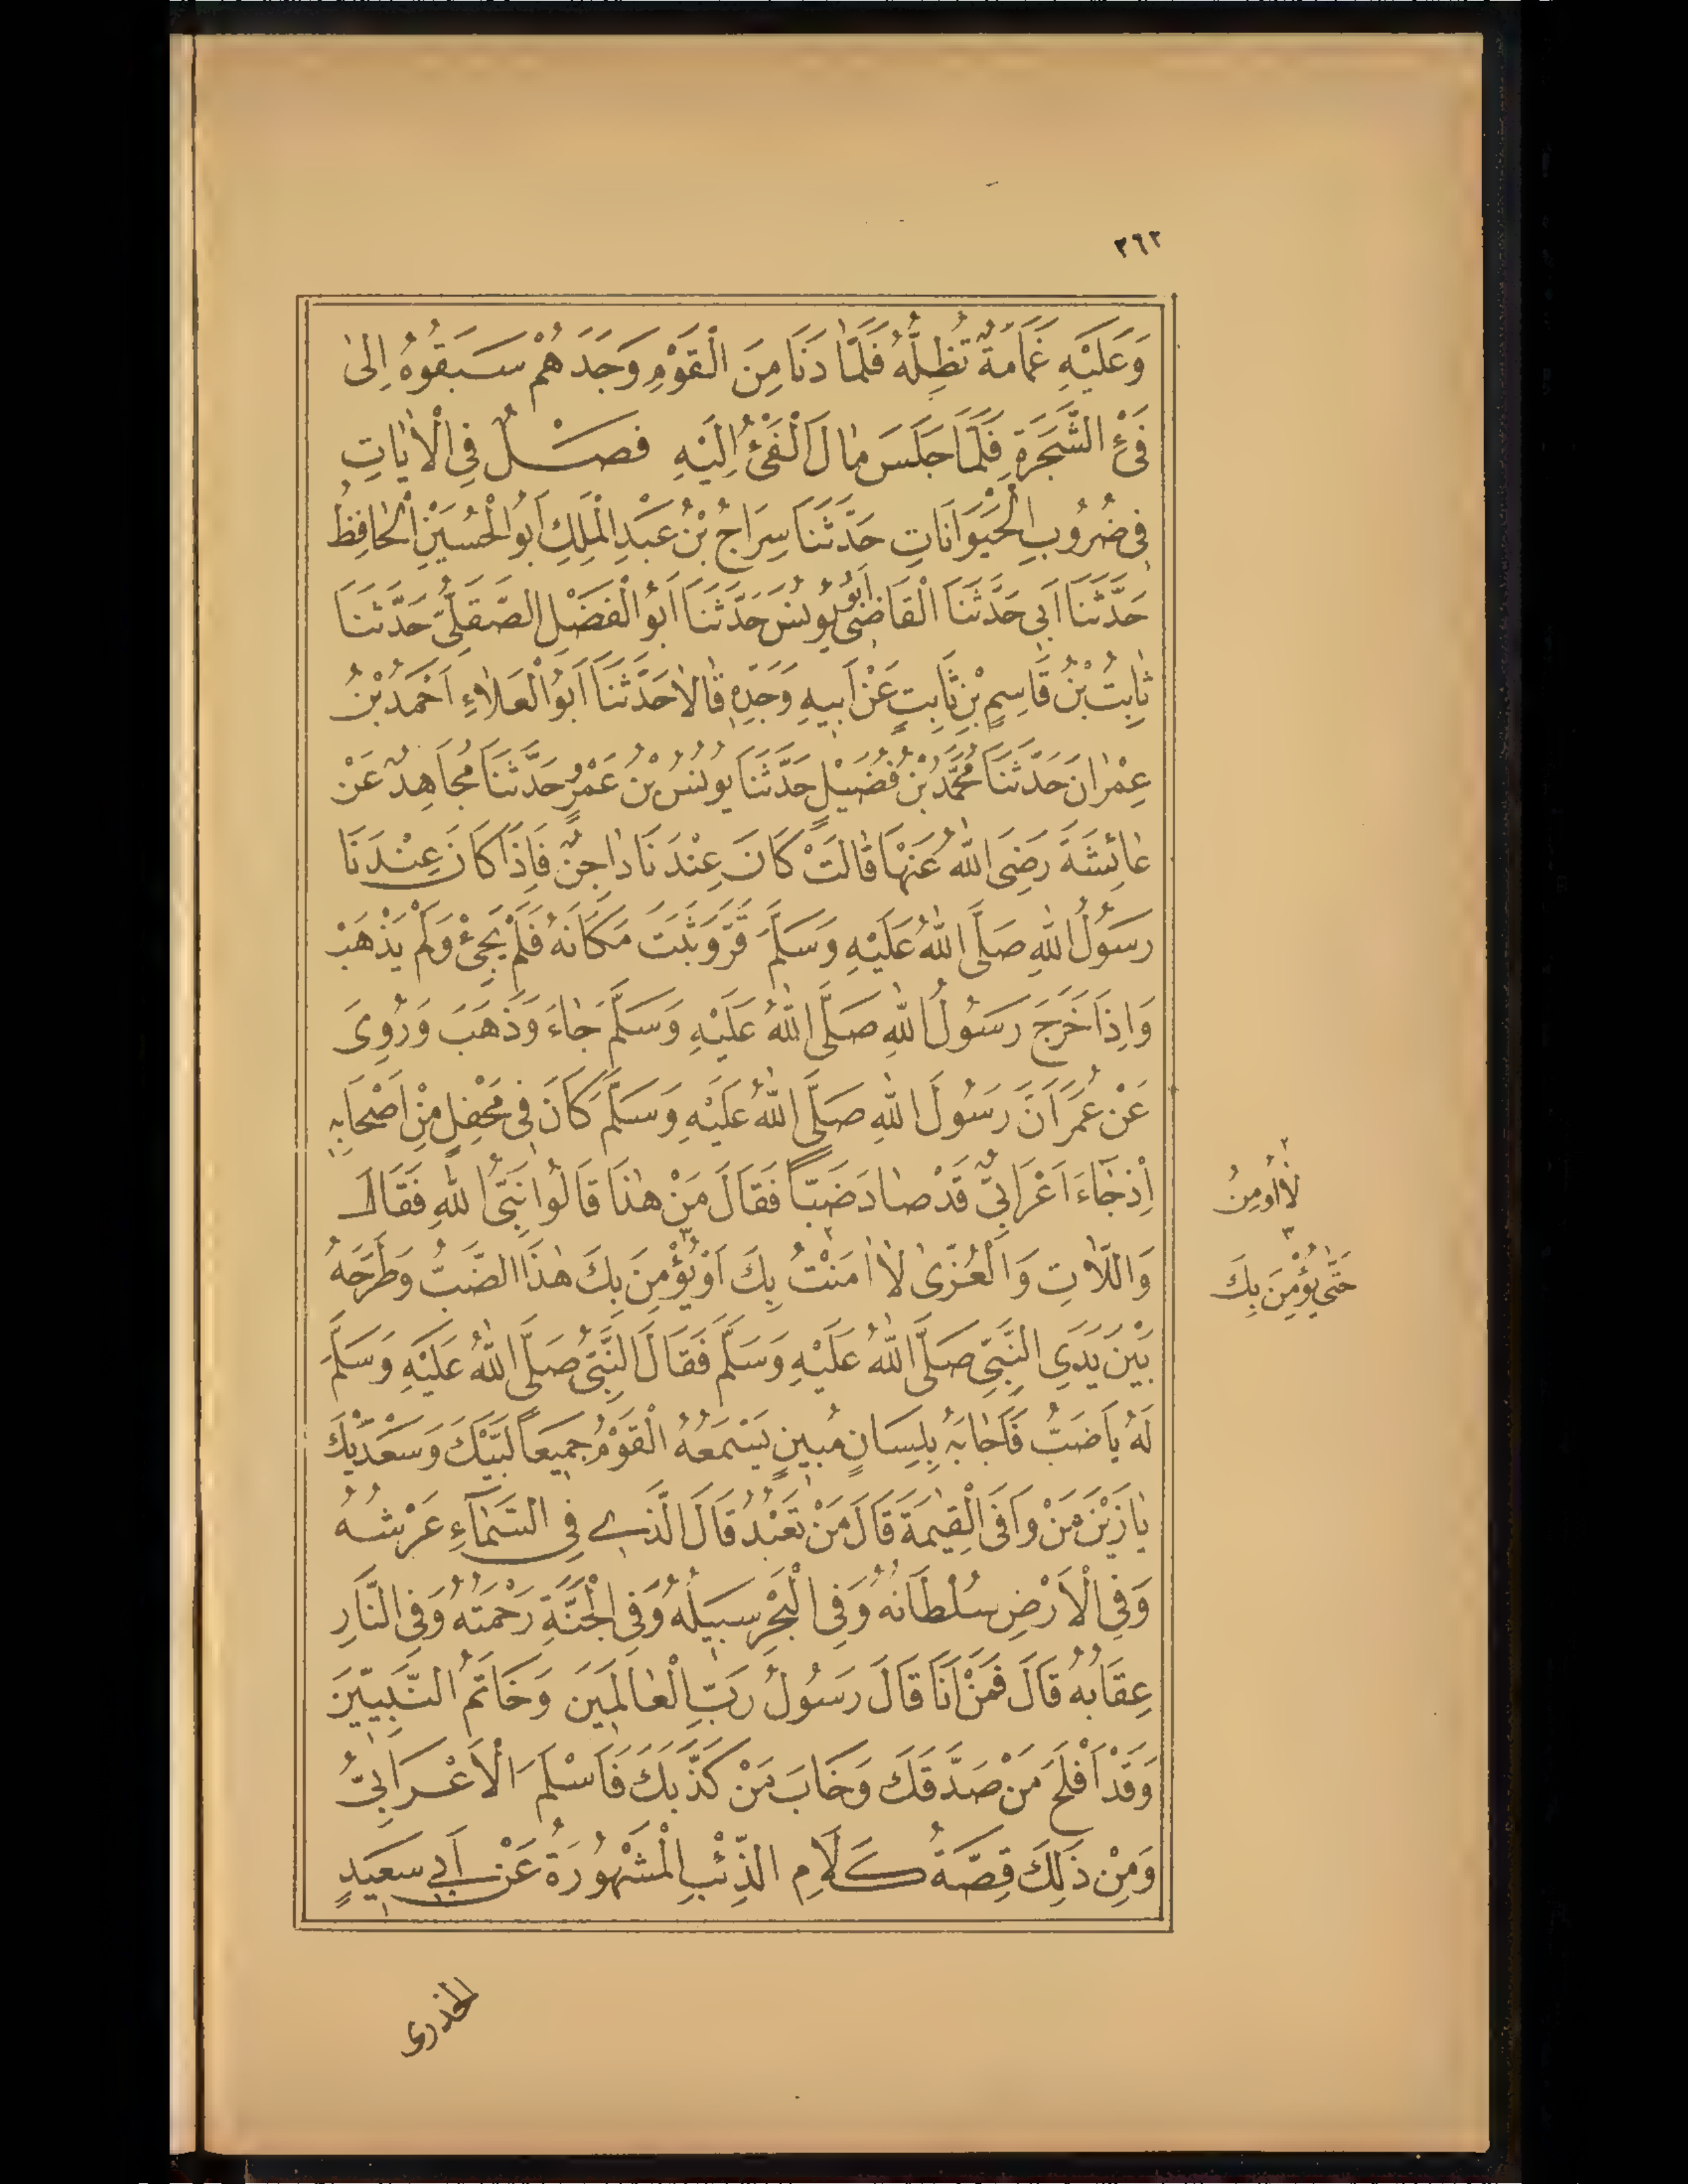 ٢٦٢
وَعَلَيْهِ غَمَامَةٌ تُظِلُّهُ فَلَمَّا دَنَا مِنَ الْقَوْمِ وَجَدَهُمْ سَبَقُوهُ اِلىٰ
فَئِ الشَّجَرَةِ فَلَمَّا جَلَسَ مٰالَ الْفَئُ اِلَيْهِ فَصْلٌ فِي الْاٰيٰاتِ
فِي ضُرُوبِ الْحَيَوَانَاتِ حَدَّثَنَا سِرَاجُ بْنُ عَبْدِ الْمَلِكِ اَبُو الْحُسَيْنِ الْحٰافِظُ
حَدَّثَنَا اَبِي حَدَّثَنَا الْقَاضِي اَبُو يُونُسَ حَدَّثَنَا اَبُو الْفَضْلِ الصَّقَلِّيُّ حَدَّثَنَا
ثٰابِتُ بْنُ قَاسِمِ بْنِ ثَابِتٍ عَنْ اَبِيهِ وَجَدِّهِ قٰالاٰ حَدَّثَنَا اَبُو الْعَلاٰءِ اَحْمَدُ بْنُ
عِمْرٰانَ حَدَّثَنَا مُحَمَّدُ بْنُ فُضَيْلٍ حَدَّثَنَا يُونُسُ بْنُ عَمْرٍو حَدَّثَنَا مُجَاهِدٌ عَنْ
عٰائِشَةَ رَضِيَ اللّٰهُ عَنْهَا قٰالَتْ كَانَ عِنْدَنَا دٰاجِنٌ فَاِذَا كَانَ عِنْدَنَا
رَسُولُ اللّٰهِ صَلَّى اللّٰهُ عَلَيْهِ وَسَلَّمَ قَرَّ وَثَبَتَ مَكَانَهُ فَلَمْ يَجِئْ وَلَمْ يَذْهَبْ
وَاِذَا خَرَجَ رَسُولُ اللّٰهِ صَلَّى اللّٰهُ عَلَيْهِ وَسَلَّمَ جٰاءَ وَذَهَبَ وَرُوِيَ
عَنْ عُمَرَ اَنَّ رَسُولَ اللّٰهِ صَلَّى اللّٰهُ عَلَيْهِ وَسَلَّمَ كَانَ فِي مَحْفِلٍ مِنْ اَصْحَابِهِ
اِذْ جَاءَ اَعْرَابِيٌّ قَدْ صٰادَ ضَبًّا فَقَالَ مَنْ هٰذَا قَالُوا نَبِيُّ اللّٰهِ فَقَالَ
وَاللاَّتِ وَالْعُزّىٰ لاٰ اٰمَنْتُ بِكَ اَوْ يُؤْمِنَ بِكَ هٰذَا الضَّبُّ وَطَرَحَهُ
بَيْنَ يَدَيِ النَّبِيِّ صَلَّى اللّٰهُ عَلَيْهِ وَسَلَّمَ فَقَالَ النَّبِيُّ صَلَّى اللّٰهُ عَلَيْهِ وَسَلَّمَ
لَهُ يَا ضَبُّ فَاَجٰابَهُ بِلِسَانٍ مُبِينٍ يَسْمَعُهُ الْقَوْمُ جَمِيعًا لَبَّيْكَ وَسَعْدَيْكَ
يٰا زَيْنَ مَنْ وَافَى الْقِيٰمَةَ قَالَ مَنْ تَعْبُدُ قَالَ الَّذِي فِي السَّمٰآءِ عَرْشُهُ
وَفِي الْاَرْضِ سُلْطَانُهُ وَفِي الْبَحْرِ سَبِيلُهُ وَفِي الْجَنَّةِ رَحْمَتُهُ وَفِي النَّارِ
عِقَابُهُ قَالَ فَمَنْ اَنَا قَالَ رَسُولُ رَبِّ الْعٰالَمِينَ وَخَاتَمُ النَّبِيِّينَ
وَقَدْ اَفْلَحَ مَنْ صَدَّقَكَ وَخَابَ مَنْ كَذَّبَكَ فَاَسْلَمَ الْاَعْرَابِيُّ
وَمِنْ ذَلِكَ قِصَّةُ كَلَامِ الذِّئْبِ الْمَشْهُورَةُ عَنْ اَبِي سَعِيدٍ
٢
لاٰ اُومِنُ
٣
حَتّٰى يُؤْمِنَ بِكَ
الخذرى